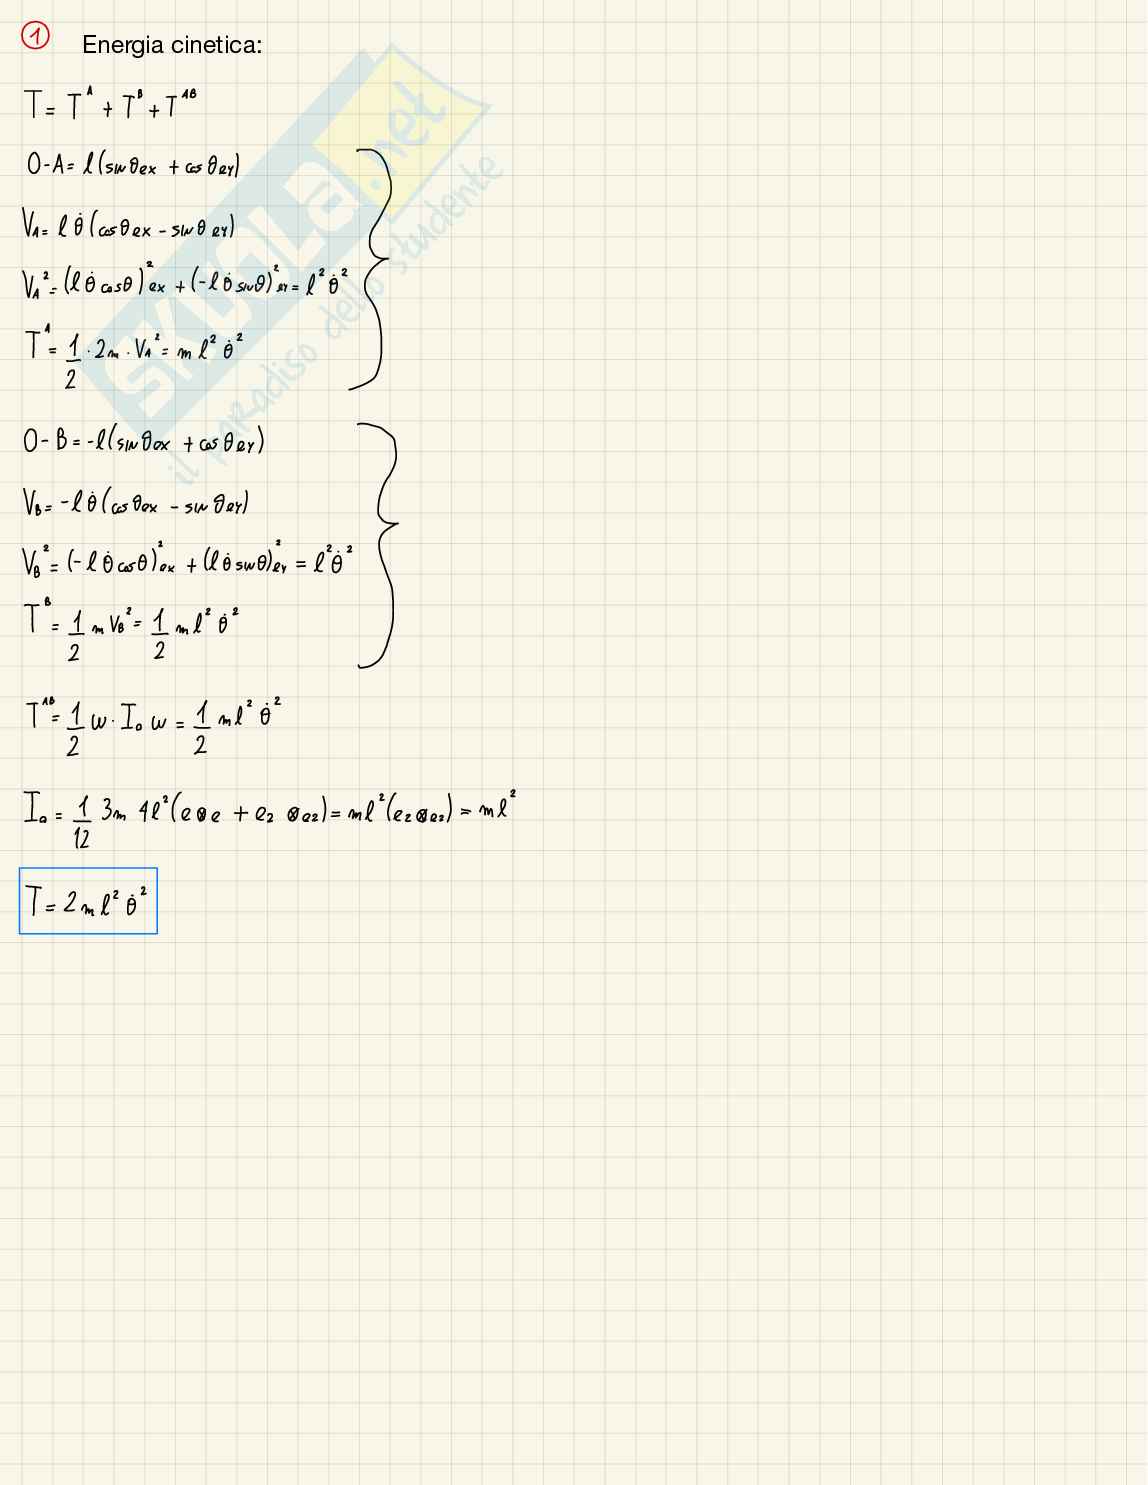 1 Energia cinetica:
T = T^A + T^B + T^AB
O-A = l(sinθ ex + cosθ ey)
V_A = l θ̇ (cosθ ex - sinθ ey)
V_A² = (l θ̇ cosθ)² ex + (-l θ̇ sinθ)² ey = l² θ̇²
T^A = 1/2 · 2m · V_A² = m l² θ̇²
O-B = -l(sinθ ex + cosθ ey)
V_B = -l θ̇ (cosθ ex - sinθ ey)
V_B² = (-l θ̇ cosθ)² ex + (l θ̇ sinθ)² ey = l² θ̇²
T^B = 1/2 m V_B² = 1/2 m l² θ̇²
T^AB = 1/2 ω · I_o ω = 1/2 m l² θ̇²
I_o = 1/12 3m 4l² (e⊗e + e₂ ⊗e₂) = ml² (e₂⊗e₂) = ml²
T = 2m l² θ̇²
SKUOLA.net
il paradiso dello studente